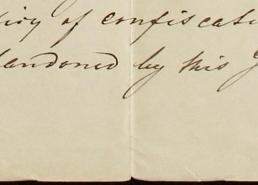 of confiscati
andoned by this